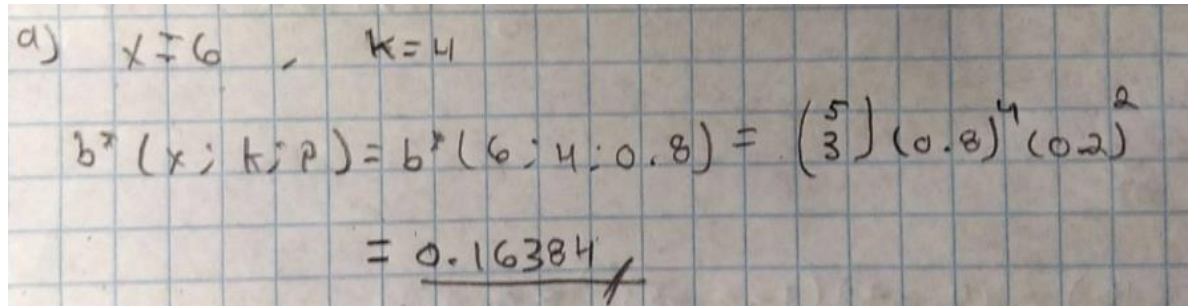 a) x = 6 , k = 4
b* (x; k; p) = b* (6; 4; 0.8) = (5 3) (0.8)^4 (0.2)^2
= 0.16384